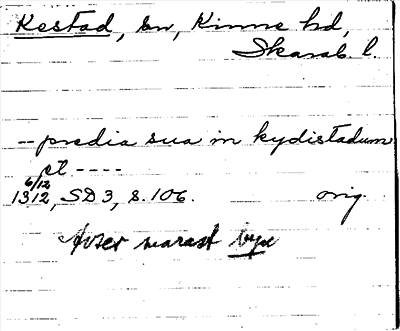 Kestad, sn, Kinne hd,
Skarab. l.
-- predia sua in kydistadum
et ----
6/12
1312, SD 3, s. 106. orig.
Avser snarast byn